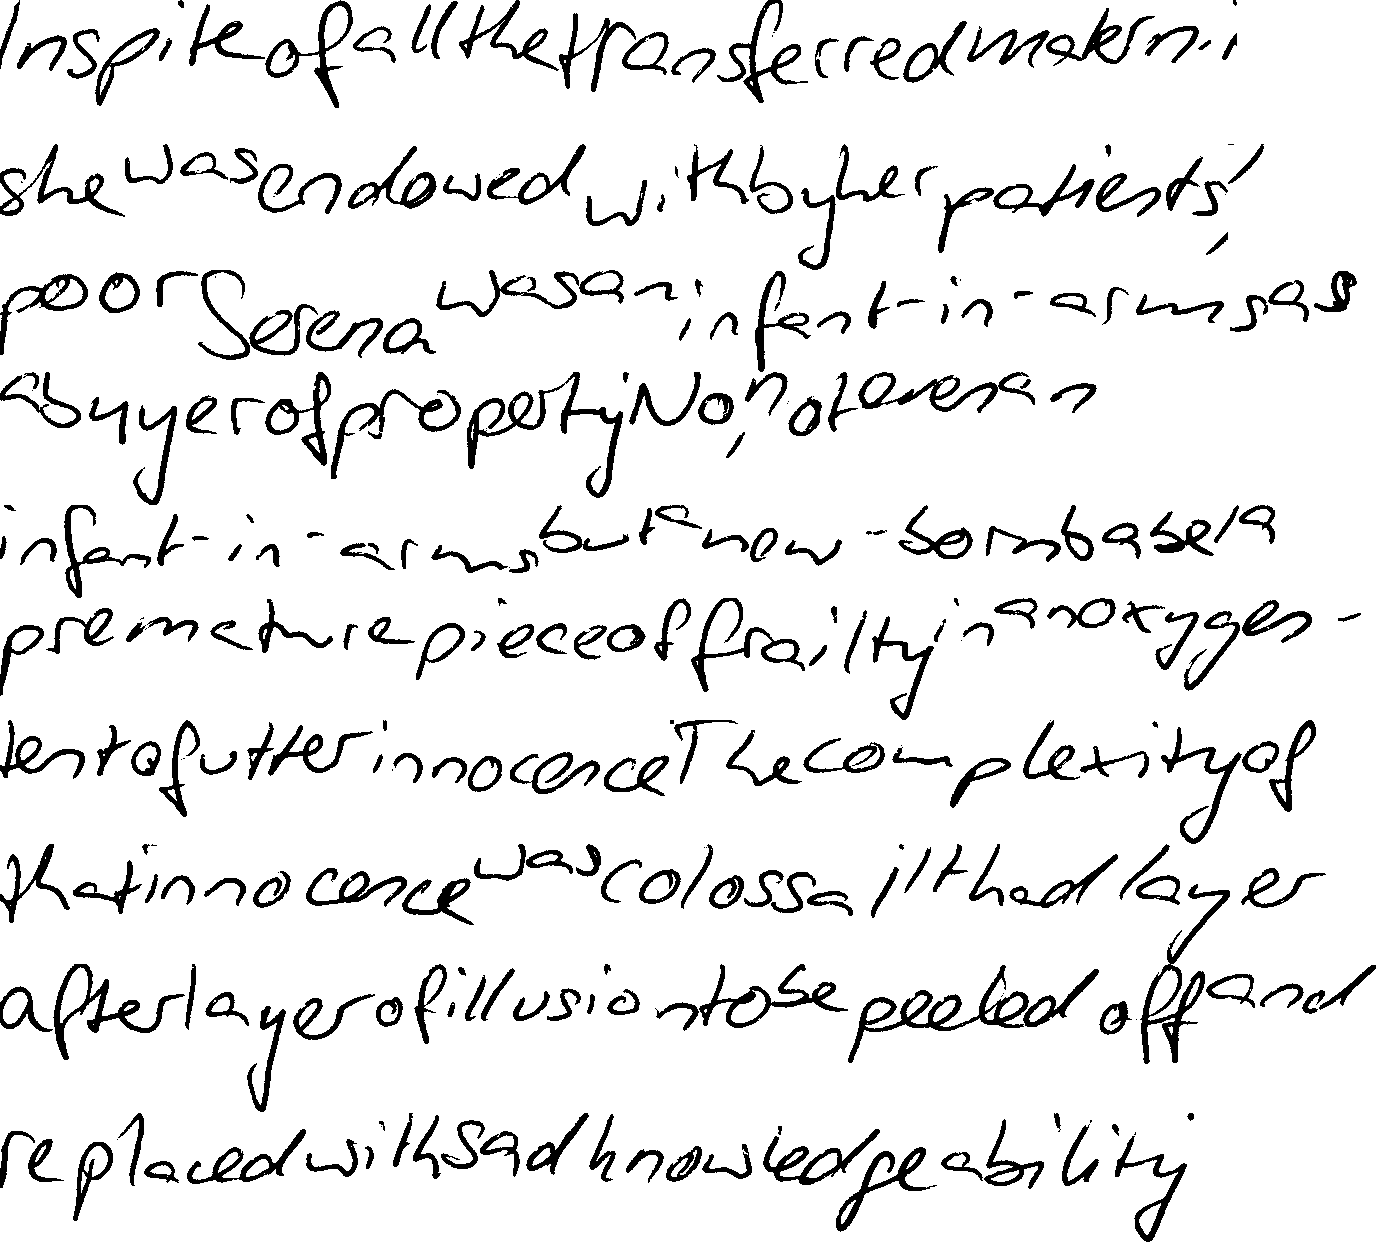 In spite of all the transferred
she was endowed with by her patients',
poor Serena was an infant-in-arms as
a buyer of property No, not even an
infant-in-arms but a new-born babe, a
premature piece of frailty in an oxygen-
tent of utter innocence The complexity of
that innocence was colossal It had layer
after layer of illusion to be peeled off and
replaced with sad knowledgeability